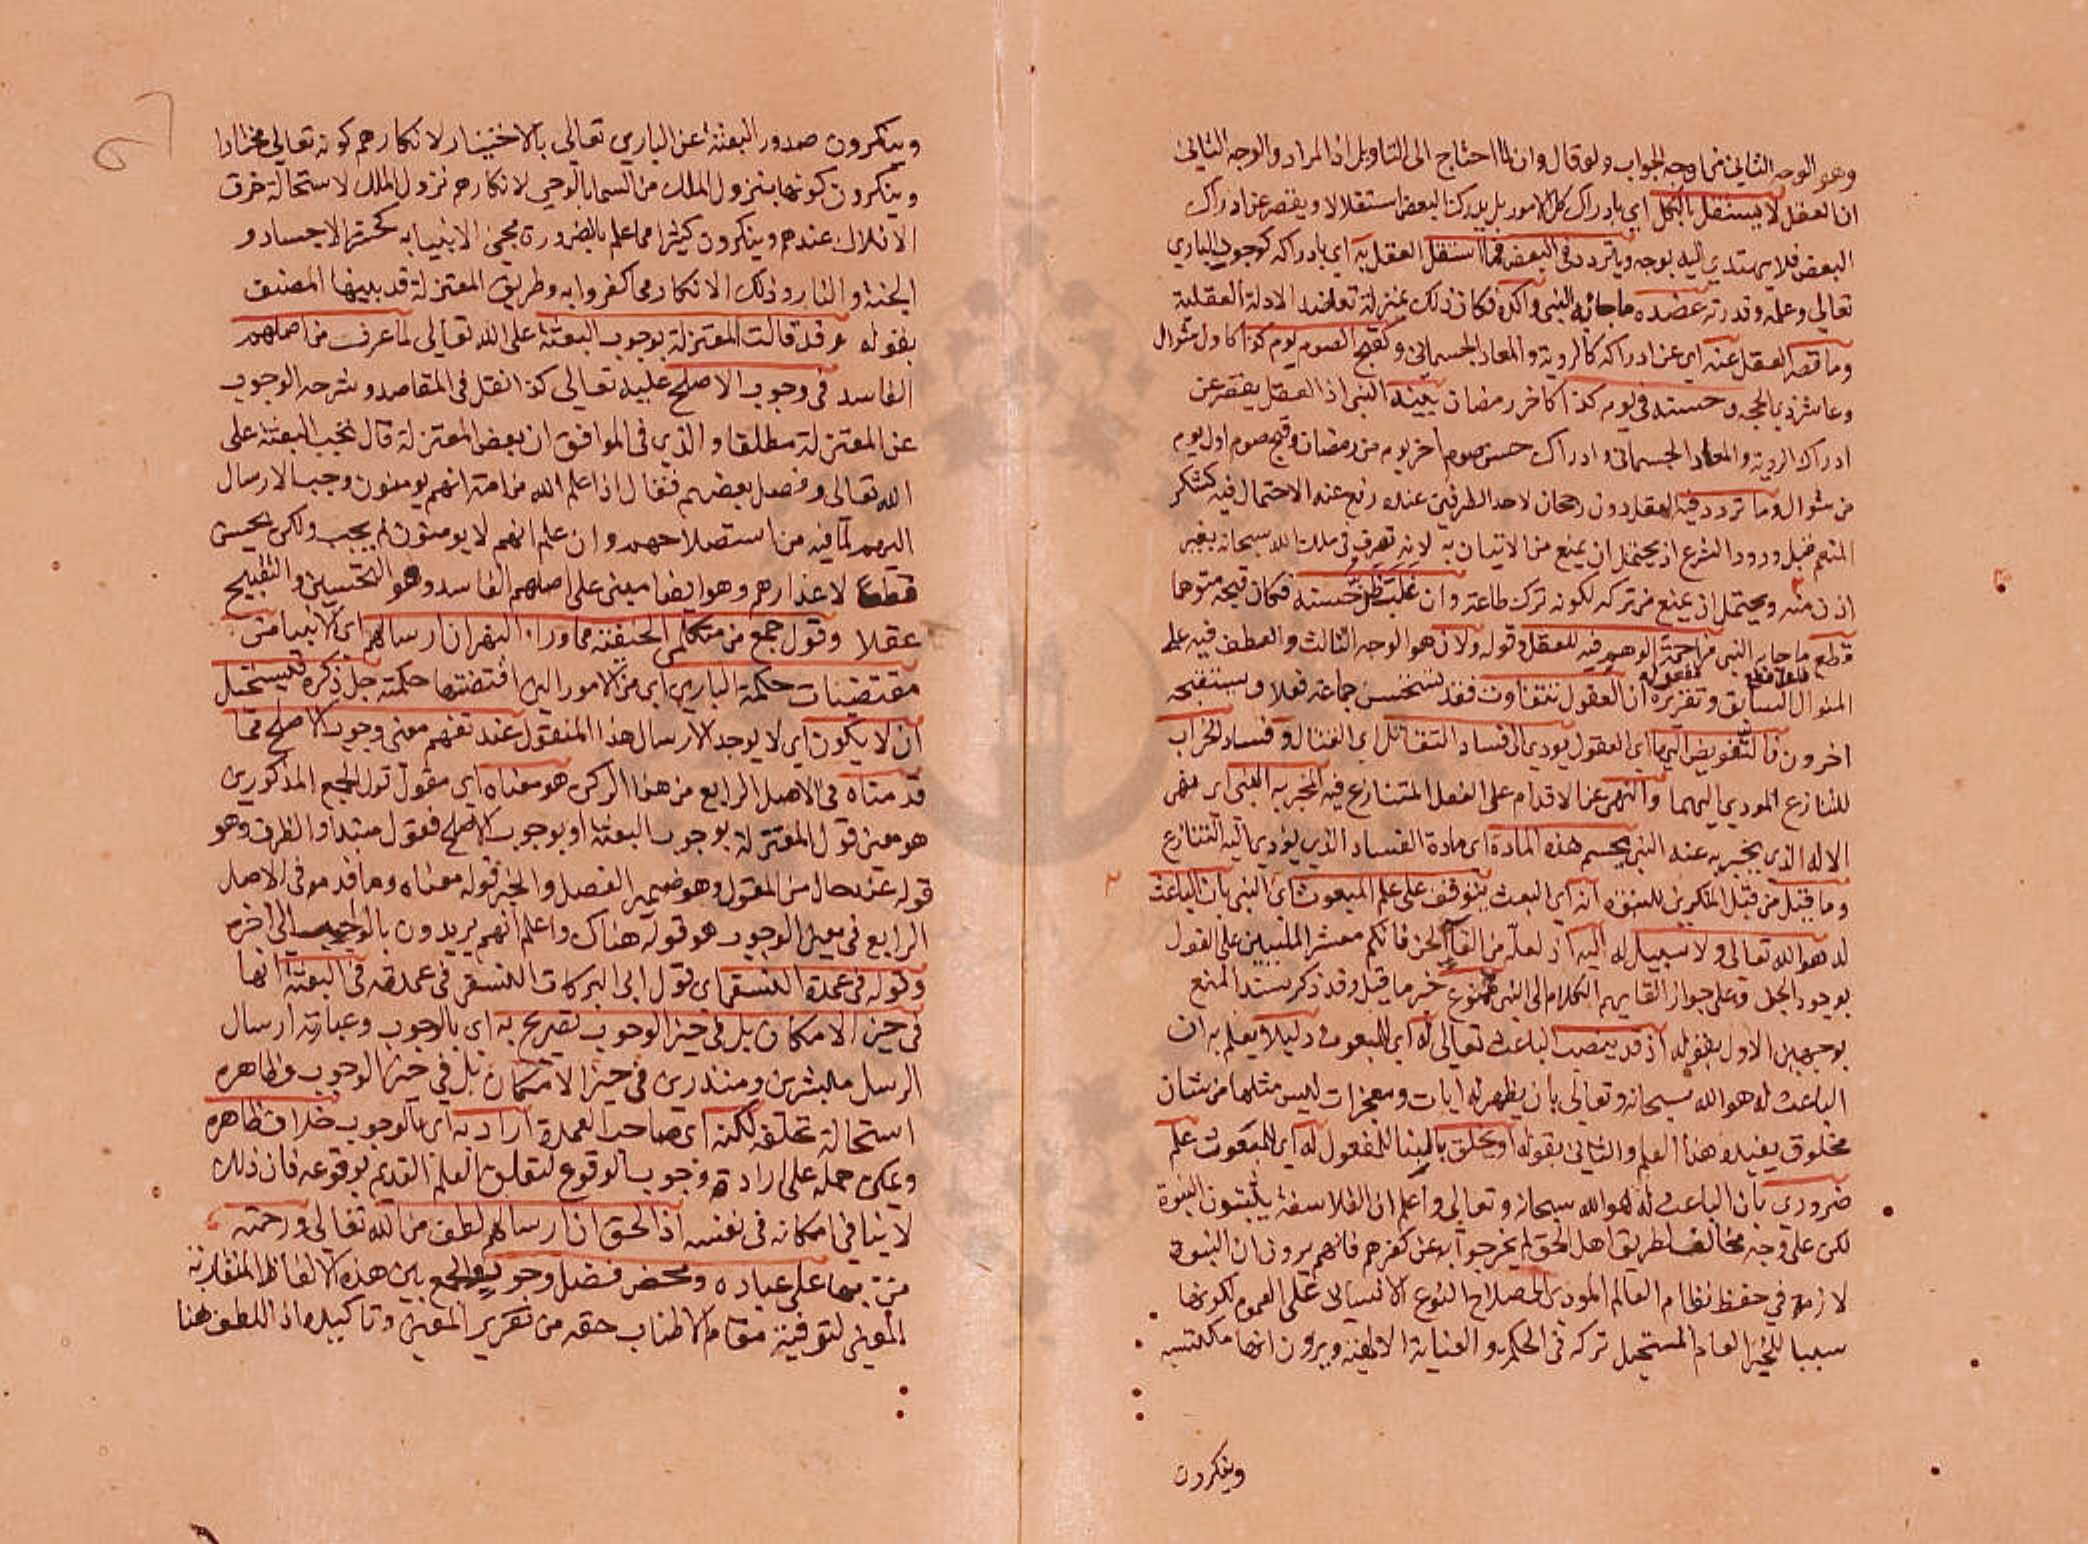 وهو الوجه الثاني من وجه الجواب ولو قال وان لما احتاج الى التاويل اذ المراد والوجه الثاني
ان العقل لا يستقل بالكل اي بادراك كل الامور بل يدرك البعض استقلالا ويقصر عن ادراك
البعض فلا يهتدي اليه بوجه ويتردد في البعض فما استقل العقل به اي بادراكه كوجود الباري
تعالى وعلمه وقدرته عضده ما جاء به النبي واكده فكان ذلك بمنزلة تعاضد الادلة العقلية
وما قصر العقل عنه اي عن ادراكه كالروية والمعاد الجسماني وكقبح الصوم يوم كذا كاول شوال
وعاشر ذي الحجة وحسنه في يوم كذا كاخر رمضان بينه النبي اذ العقل يقصر عن
ادراك الروية والمعاد الجسماني وادراك حسن صوم اخر يوم من رمضان وقبح صوم اول يوم
من شوال وما تردد فيه العقل دون رجحان لاحد الطرفين عنده رفع عنه الاحتمال فيه كشكر
المنعم قبل ورود الشرع اذ يحتمل ان يمنع من الاتيان به لانه تصرف في ملك الله سبحانه بغير
اذن منه ويحتمل ان يمنع من تركه لكونه ترك طاعة وان غلب ظن حسنه فكان قبحه متوهما
قطع ما جاء به النبي مزاحمة الوهم فيه للعقل وقوله ولان هو الوجه الثالث والعطف فيه على
فاعل قطع مفعوله
المنوال السابق وتقريره ان العقول تتفاوت فقد تستحسن جماعة فعلا ويستقبحه
اخرون فالتفويض اليها اي العقول يودي الى فساد التقاتل اي القتال وفساد الخراب
للتنازع المودي اليهما والنهي عن الاقدام على الفعل المتنازع فيه المخبر به النبي اي نهي
الاله الذي يخبر به عنه النبي يحسم هذه المادة اي مادة الفساد الذي يؤدي اليه التنازع
وما قيل من قبل المنكرين للبعثة انه اي البعث يتوقف على علم المبعوث اي النبي بان الباعث
له هو الله تعالى ولا سبيل له اليه اذ لعله من القاء الجن فانكم معشر المليين على القول
بوجود الجن وعلى جواز القايهم الكلام الى النبي ممنوع خبر ما قيل وقد ذكر سند المنع
بوجهين الاول بقوله اذ قد ينصب الباعث تعالى له اي للمبعوث دليلا يعلم به ان
الباعث له هو الله سبحانه وتعالى بان يظهر له ايات ومعجزات ليس مثلها من شان
مخلوق يفيده هذا العلم والثاني بقوله او يخلق بالبنا للمفعول له اي للمبعوث علم
ضروري بان الباعث له هو الله سبحانه وتعالى واعلم ان الفلاسفة يثبتون النبوة
لكن على وجه مخالف لطريق اهل الحق لم يخرجوا به عن كفرهم فانهم يرون ان النبوة
لازمة في حفظ نظام العالم المودي الى صلاح النوع الانساني على العموم لكونها
سببا للخير العام المستحيل تركه في الحكمة والعناية الالهية ويرون انها مكتسبة
وينكرون
وينكرون صدور البعثة عن الباري تعالى بالاختيار لانكارهم كونه تعالى مختارا
وينكرون كونها بنزول الملك من السما بالوحي لانكارهم نزول الملك لاستحالة خرق
الافلاك عندهم وينكرون كثيرا مما علم بالضرورة مجئ الانبيا به كحشر الاجساد و
الجنة والنار وذلك الانكار مما كفروا به وطريق المعتزلة قد بينها المصنف
بقوله وقد قالت المعتزلة بوجوب البعثة على الله تعالى لما عرف من اصلهم
الفاسد في وجوب الاصلح عليه تعالى كذا نقل في المقاصد وشرحه الوجوب
عن المعتزلة مطلقا والذي في المواقف ان بعض المعتزلة قال تجب البعثة على
الله تعالى وفصل بعضهم فقال اذا علم الله من امة انهم يومنون وجب الارسال
اليهم لما فيه من استصلاحهم وان علم انهم لا يومنون لم يجب ولكن يحسن
قطعا لاعذارهم وهو ايضا مبني على اصلهم الفاسد وهو التحسين والتقبيح
عقلا وقول جمع من متكلمي الحنفية مما وراء النهر ان ارسالهم اي الانبيا من
مقتضيات حكمة الباري اي من الامور التي اقتضتها حكمته جل ذكره فيستحيل
ان لا يكون اي لا يوجد الارسال هذا المنقول عند تفهم معنى وجوب الاصلح مما
قدمناه في الاصل الرابع من هذا الركن هو معناه اي مقول قول الجمع المذكورين
هو معنى قول المعتزلة بوجوب البعثة او بوجوب الاصلح فقول مبتدا والظرف وهو
قوله عند حال من المقول وهو ضمير الفصل والخبر قوله معناه وما قدمه في الاصل
الرابع في معنى الوجوب هو قوله هناك واعلم انهم يريدون بالواجب الى اخره
وقوله في عمدة النسفي اي قول ابي البركات النسفي في عمدته في البعثة انها
في حيز الامكان بل في حيز الوجوب تصريح به اي بالوجوب وعبارته ارسال
الرسل مبشرين ومنذرين في حيز الامكان بل في حيز الوجوب وظاهره
استحالة تخلفه لكنه اي صاحب العمدة اراد به اي بالوجوب خلاف ظاهره
ويمكن حمله على ارادة وجوب الوقوع لتعلق العلم القديم بوقوعه فان ذلك
لا ينافي امكانه في نفسه اذ الحق ان ارسالهم لطف من الله تعالى ورحمة
من بها على عباده ومحض فضل وجود والجمع بين هذه الالفاظ المتقاربة
المعنى لتوفية مقام الاطناب حقه من تقرير المعنى وتاكيده اذ اللطف هنا